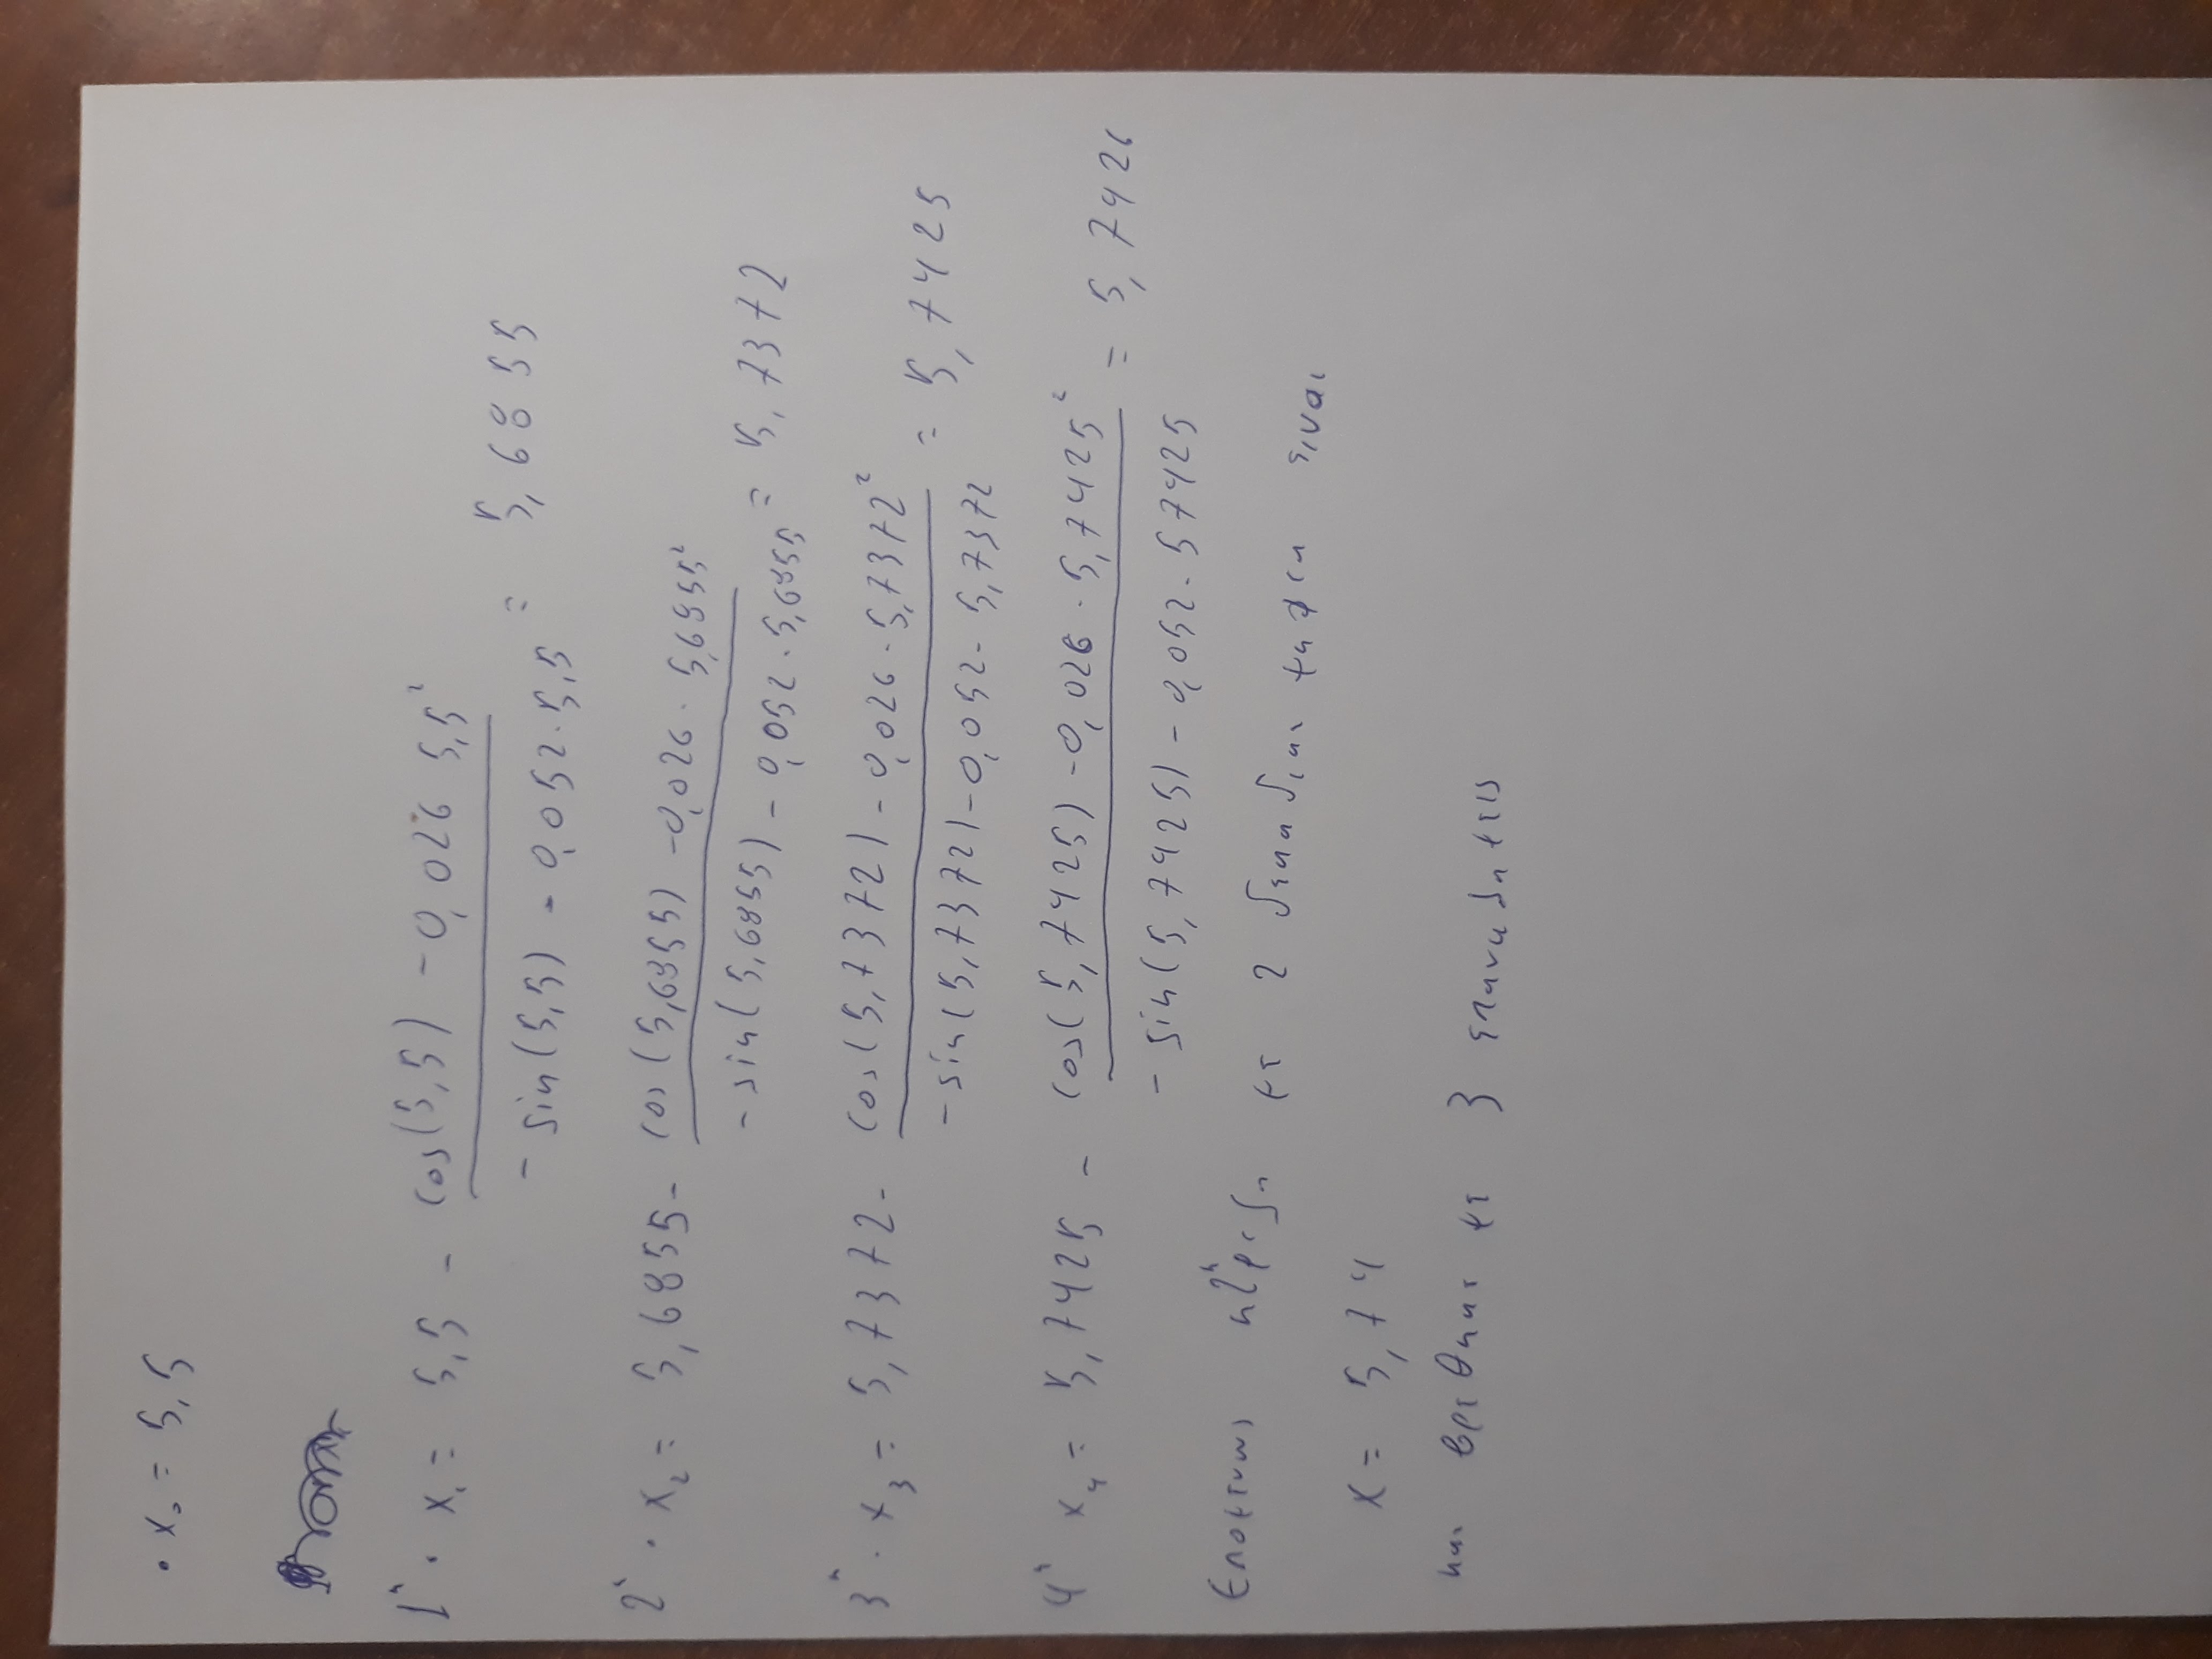 • x₀ = 5,5
1η • x₁ = 5,5 - (cos(5,5) - 0,026 5,5²) / (-sin(5,5) - 0,052 · 5,5) = 5,6855
2η • x₂ = 5,6855 - (cos(5,6855) - 0,026 · 5,6855²) / (-sin(5,6855) - 0,052 · 5,6855) = 5,7372
3η • x₃ = 5,7372 - (cos(5,7372) - 0,026 · 5,7372²) / (-sin(5,7372) - 0,052 · 5,7372) = 5,7425
4η x₄ = 5,7425 - (cos(5,7425) - 0,026 · 5,7425²) / (-sin(5,7425) - 0,052 · 57425) = 5,7426
Επομενως με 2 δεκαδικα ψηφια ειναι
x = 5,74
και βρεθηκε με 3 επαναληψεις